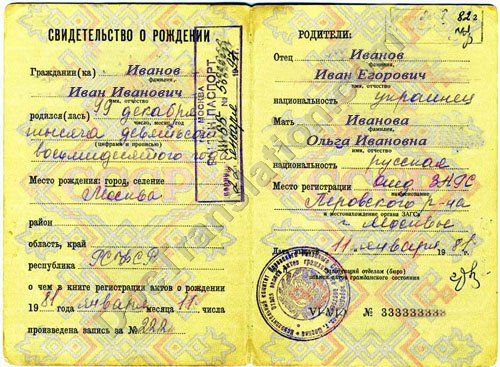 СВИДЕТЕЛЬСТВО О РОЖДЕНИИ
Гражданин(ка) Иванов
фамилия,
Иван Иванович
имя, отчество
родился(лась) 99 декабря
число, месяц, год
тысяча девятьсот
(цифрами и прописью)
восьмидесятого года
Место рождения: город, селение
Москва
район
область, край
республика РСФСР
о чем в книге регистрации актов о рождении
19 81 года января месяца 11 числа
произведена запись за № 222
МОСКВА
ПАСПОРТ
РОДИТЕЛИ:
Отец Иванов
фамилия,
Иван Егорович
имя, отчество
национальность украинец
Мать Иванова
фамилия,
Ольга Ивановна
имя, отчество
национальность русская
Место регистрации отд. ЗАГС
наименование
Перовского р-на
и местонахождение органа ЗАГСа
г. Москвы
11 января 1981 г.
Заведующий отделом (бюро)
записи актов гражданского состояния
VI-МЮ № 333333333
82г